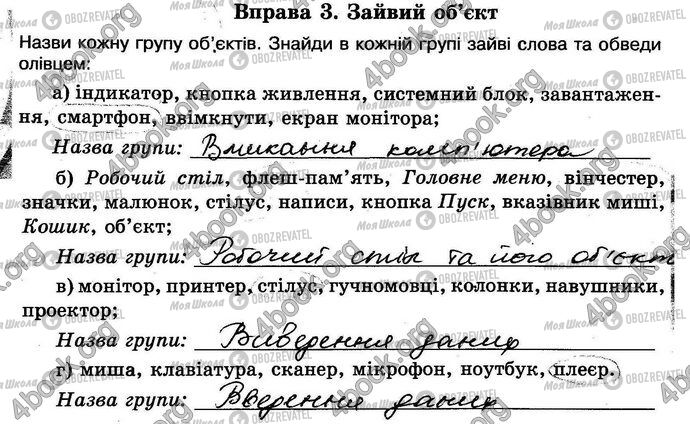 Вправа 3. Зайвий об’єкт
Назви кожну групу об’єктів. Знайди в кожній групі зайві слова та обведи
олівцем:
а) індикатор, кнопка живлення, системний блок, завантажен-
ня, смартфон, ввімкнути, екран монітора;
Назва групи: Вмикання комп'ютера
б) Робочий стіл, флеш-пам’ять, Головне меню, вінчестер,
значки, малюнок, стілус, написи, кнопка Пуск, вказівник миші,
Кошик, об’єкт;
Назва групи: Робочий стіл та його об'єкт
в) монітор, принтер, стілус, гучномовці, колонки, навушники,
проектор;
Назва групи: Виведення даних
г) миша, клавіатура, сканер, мікрофон, ноутбук, плеєр.
Назва групи: Введення даних